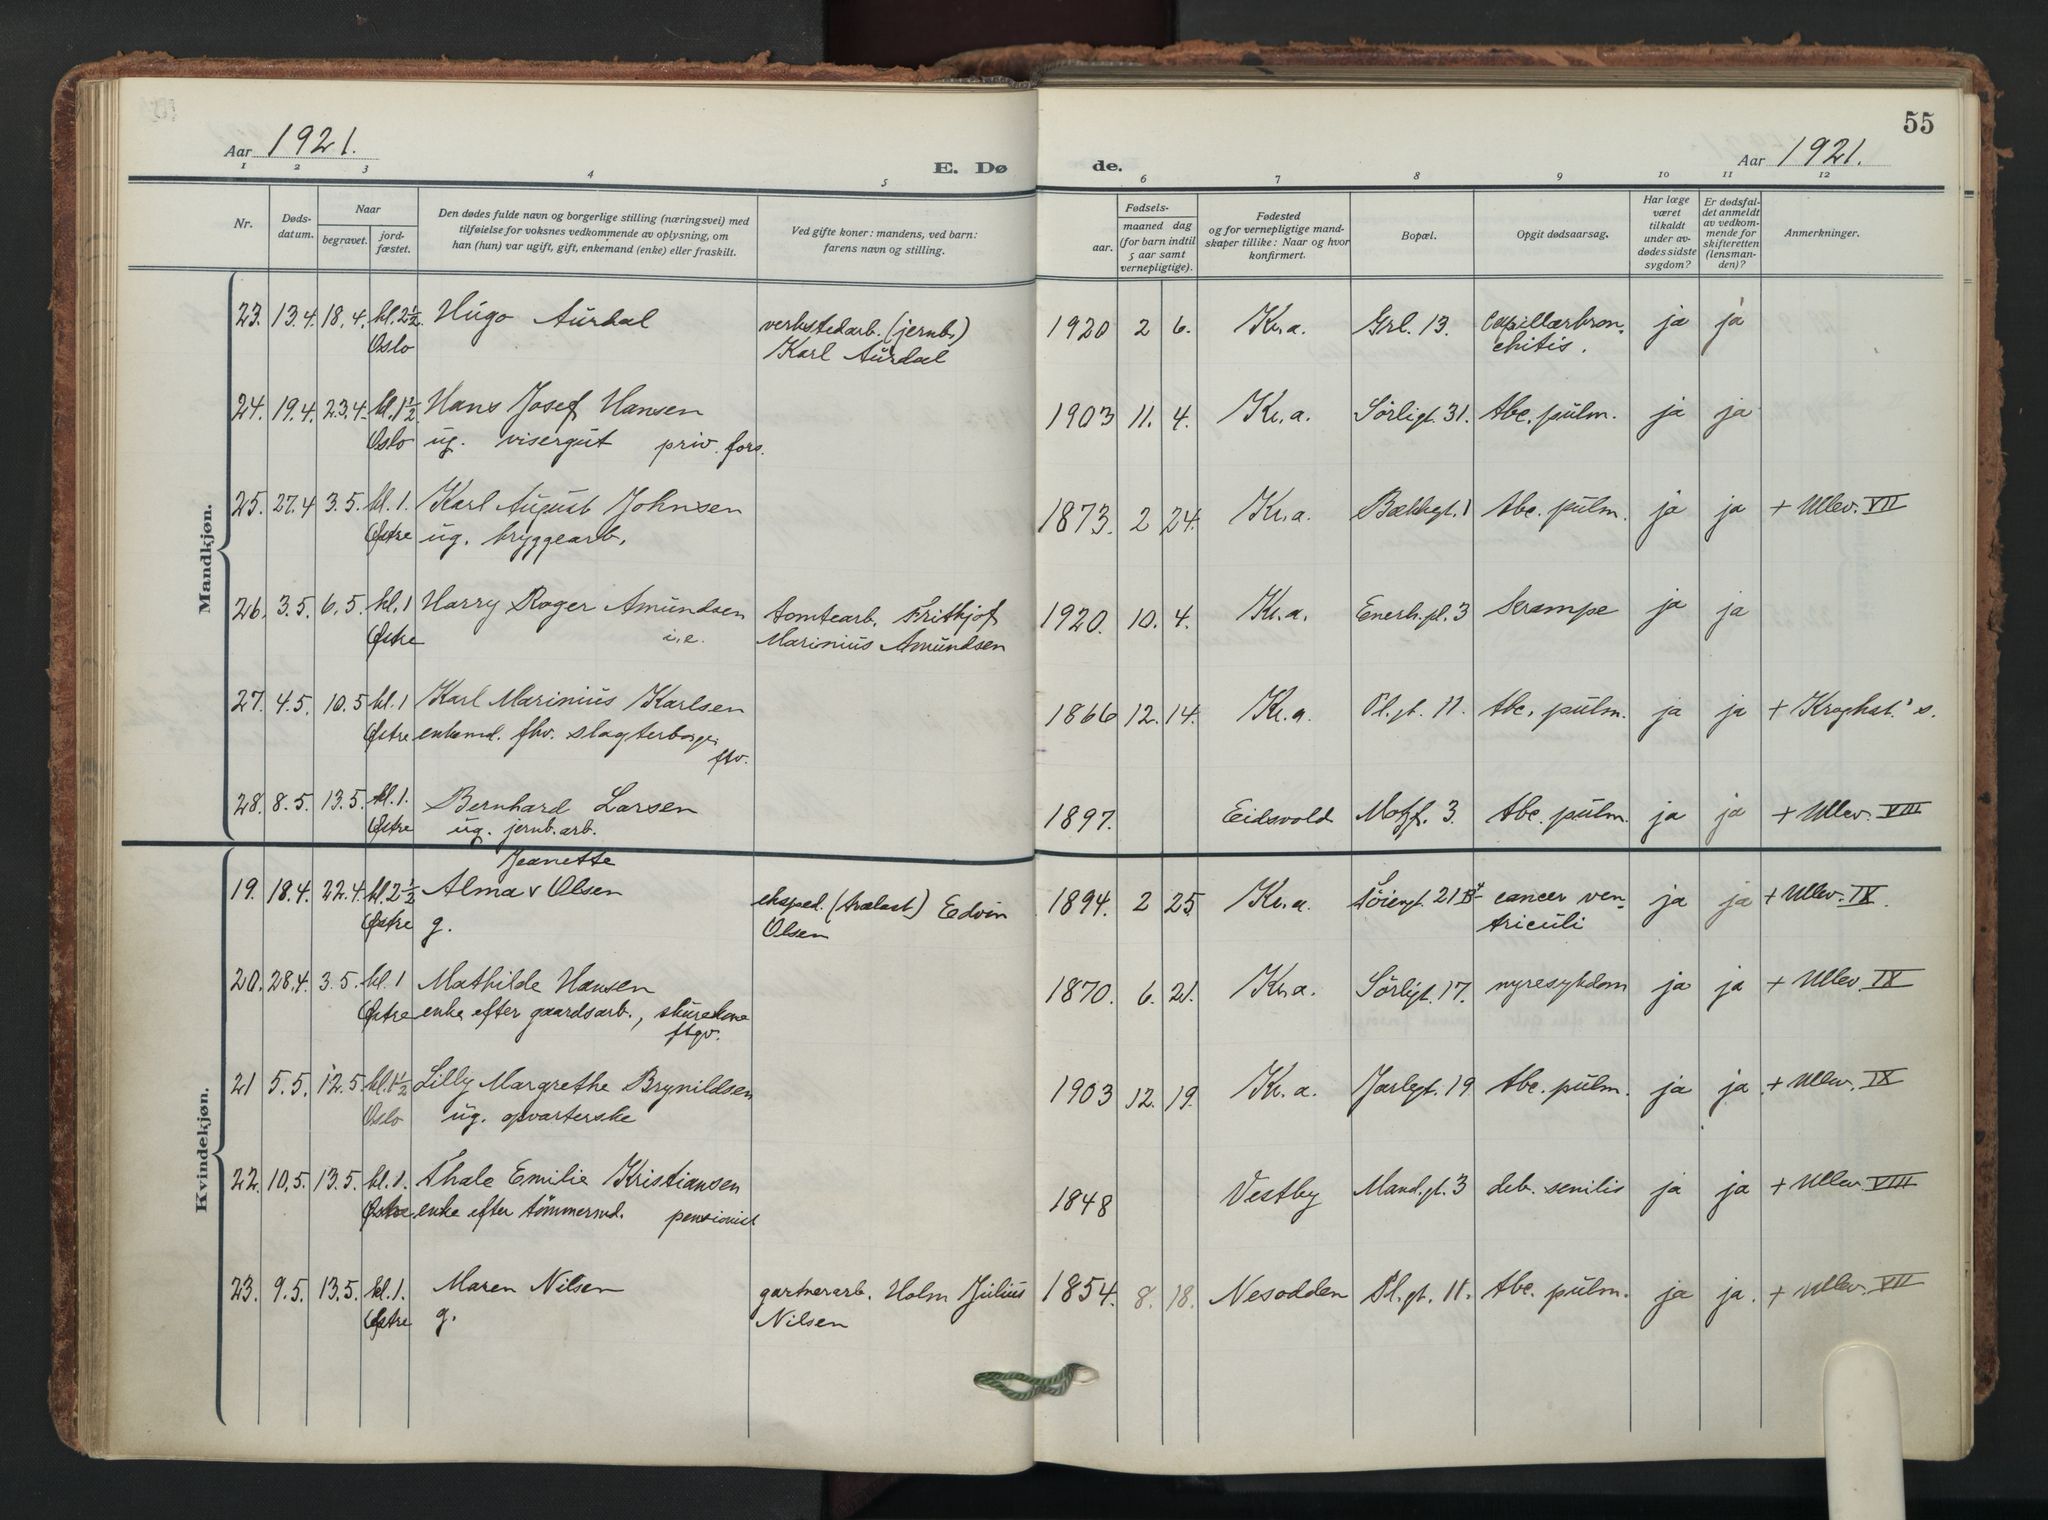 55
Aar 1921.
E. Dø de.
Aar 1921.
1 2 3 4 5 6 7 8 9 10 11 12
Nr.
Døds-
datum.
Naar
begravet.
jord-
fæstet.
Den dødes fulde navn og borgerlige stilling (næringsvei) med
tilføielse for voksnes vedkommende av oplysning, om
han (hun) var ugift, gift, enkemand (enke) eller fraskilt.
Ved gifte koner: mandens, ved barn:
farens navn og stilling.
Fødsels-
aar.
maaned dag
(for barn indtil
5 aar samt
vernepligtige).
Fødested
og for vernepligtige mand-
skaper tillike: Naar og hvor
konfirmert.
Bopæl.
Opgit dødsaarsag.
Har læge
været
tilkaldt
under av-
dødes sidste
sygdom?
Er dødsfal-
det anmeldt
av vedkom-
mende for
skifteretten
(lensman-
den)?
Anmerkninger.
Mandkjøn.
23. 13.4 18.4. kl. 2½ Hugo Aurdal verkstedarb. (jernb.) 1920 2 6. Kr.a. Grl. 13. Capillærbron- ja ja
Oslo Karl Aurdal chitis.
24. 19.4. 23.4. kl. 1½ Hans Josef Hansen 1903 11. 4. Kr.a. Sörligt. 31. Tbc. pulm. ja ja
Oslo ug. visergut priv. fors.
25. 27.4 3.5. kl. 1. Karl August Johnsen 1873. 2 24. Kr.a. Bækkegt. 1 Tbc. pulm. ja ja + Ullev. VII
Østre ug. bryggearb.
26. 3.5. 6.5. kl. 1 Harry Roger Amundsen tomtearb. Frithjof 1920. 10. 4. Kr.a. Enerh.pl. 3 Krampe ja ja
Østre i.e. Marinius Amundsen
27. 4.5. 10.5 kl. 1 Karl Marinius Karlsen 1866 12. 14. Kr.a. Pl.gt. 11. Tbc. pulm. ja ja + Kroghst.'s.
Østre enkemd. fhv. slagterborger
ftv.
28. 8.5. 13.5. kl. 1. Bernhard Larsen 1897. Eidsvold Motzf. 3. Tbc. pulm. ja ja + Ullev. VIII
Østre ug. jernb.arb.
Kvindekjøn.
Jeanette
19. 18.4. 22.4. kl. 2½ Alma v Olsen eksped. (trælast) Edvin 1894. 2 25 Kr.a. Söiengt. 21 B cancer ven- ja ja + Ullev. IX.
Østre g. Olsen triculi
20. 28.4. 3.5. kl. 1 Mathilde Hansen 1870. 6. 21. Kr.a. Sörligt. 17. nyresykdom ja ja + Ullev. IX
Østre enke efter gaardsarb., skurekone
ftgv.
21 5.5. 12.5 kl. 1½ Lilly Margrethe Brynildsen 1903 12. 19. Kr.a. Jarlegt. 19 Tbc. pulm. ja ja + Ullev. IX
Oslo ug. opvarterske
22. 10.5. 13.5. kl. 1. Thale Emilie Kristiansen 1848 Vestby Mand.gt. 3 deb. senilis ja ja + Ullev. VIII
Østre enke efter tömmermd. pensionist
23. 9.5. 13.5. kl. 1. Maren Nilsen gartnerarb. Holm Julius 1854. 8. 18. Nesodden Pl.gt. 11. Tbc. pulm. ja ja. + Ullev. VII
Østre g. Nilsen